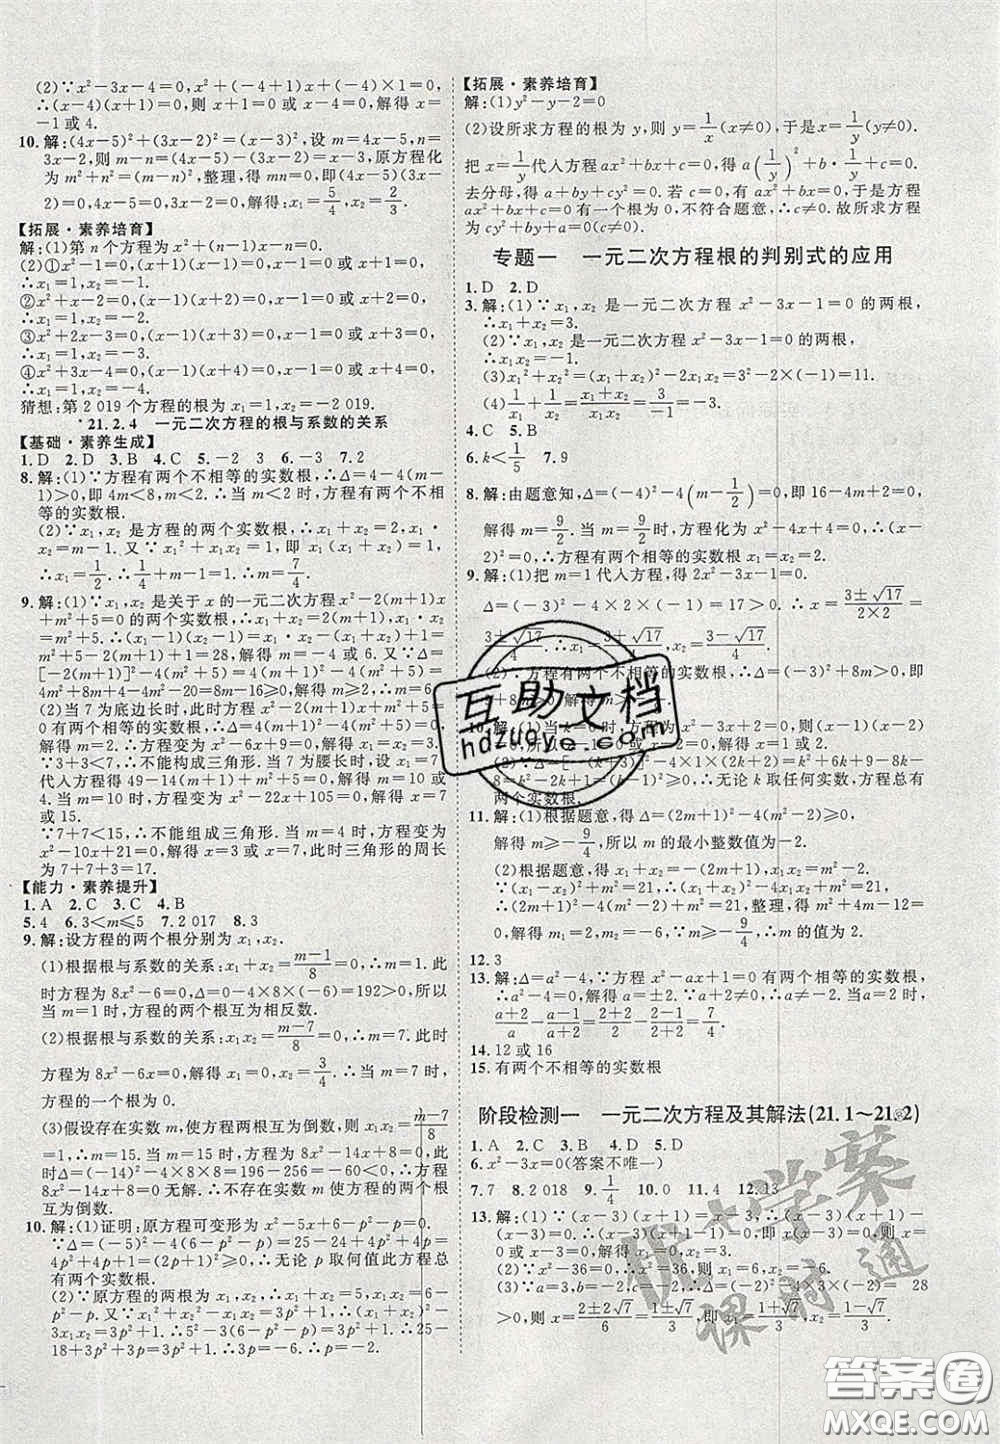 (2)∵x²-3x-4=0,∴x²+(-4+1)x+(-4)×1=0,
∴(x-4)(x+1)=0,则 x+1=0 或 x-4=0,解得 x=
-1或4.
10.解:(4x-5)²+(3x-2)²=(x-3)²,设 m=4x-5,n=
3x-2,则 m-n=(4x-5)-(3x-2)=x-3,原方程化
为 m²+n²=(m-n)²,整理得 mn=0,即(4x-5)(3x-
2)=0,∴4x-5=0,3x-2=0,解得:x₁=5/4,x₂=2/3.
【拓展·素养培育】
解:(1)第 n 个方程为x²+(n-1)x-n=0.
(2)①x²-1=0,(x+1)(x-1)=0,x+1=0或x-1=0,
∴x₁=1,x₂=-1.
②x²+x-2=0,(x-1)(x+2)=0,x-1=0或x+2=0,
∴x₁=1,x₂=-2.
③x²+2x-3=0,(x-1)(x+3)=0,x-1=0或x+3=0,
∴x₁=1,x₂=-3.
④x²+3x-4=0,(x-1)(x+4)=0,x-1=0或x+4=0,
∴x₁=1,x₂=-4.
猜想:第2 019个方程的根为x₁=1,x₂=-2 019.
21.2.4 一元二次方程的根与系数的关系
【基础·素养生成】
1.D 2.D 3.B 4.C 5.-2 3 6.-3 7.2
8.解:(1)∵方程有两个不相等的实数根,∴Δ=4-4(m-
1)>0,即4m<8,m<2.∴当 m<2时,方程有两个不相
等的实数根.
(2)∵x₁,x₂是方程的两个实数根,∴x₁+x₂=2,x₁·
x₂=m-1.又∵x₁²+x₁x₂=1,即x₁(x₁+x₂)=1,
∴x₁=1/2.∴1/4-1+m-1=0,∴m=7/4.
9.解:(1)∵x₁,x₂是关于x的一元二次方程x²-2(m+1)x+
m²+5=0的两个实数根,∴x₁+x₂=2(m+1),x₁·x₂=
m²+5,∴(x₁-1)(x₂-1)=x₁·x₂-(x₁+x₂)+1=
m²+5-2(m+1)+1=28,解得 m=-4或 m=6.又∵Δ=
[-2(m+1)]²-4(m²+5)=4(m+1)²-4(m²+5)=
4m²+8m+4-4m²-20=8m-16≥0,解得 m≥2,∴m=6.
(2)当7为底边长时,此时方程x²-2(m+1)x+m²+5=
0有两个相等的实数根,∴Δ=4(m+1)²-4(m²+5)=0,
解得 m=2.∴方程变为x²-6x+9=0,解得x₁=x₂=3.
∵3+3<7,∴不能构成三角形.当7为腰长时,设x₁=7,
代入方程得49-14(m+1)+m²+5=0,解得 m=10或
4.当 m=10时,方程变为x²-22x+105=0,解得x=7
或15.
∵7+7<15,∴不能组成三角形.当 m=4时,方程变为
x²-10x+21=0,解得x=3或7.此时三角形的周长
为7+7+3=17.
【能力·素养提升】
1.A 2.C 3.C 4.B
5.4 6.3<m≤5 7.2 017 8.3
9.解:设方程的两个根分别为x₁,x₂.
(1)根据根与系数的关系:x₁+x₂=(m-1)/8=0,∴m=1.此
时方程为8x²-6=0,Δ=0-4×8×(-6)=192>0,所以
当 m=1时,方程的两个根互为相反数.
(2)根据根与系数的关系:x₁·x₂=(m-7)/8=0,∴m=7.此时
方程为8x²-6x=0,解得x₁=0,x₂=3/4.
(3)假设存在实数m,使方程两根互为倒数,则x₁x₂=(m-7)/8
=1,∴m=15.此时方程为8x²-14x+8=0,即4x²-7x+
4=0.又∵Δ=(-7)²-4×4×4=49-64=-15<0,∴方程
8x²-14x+8=0无解.∴不存在实数m使方程的两个根
互为倒数.
10.解:(1)证明:原方程可变形为x²-5x+6-p²-p=0.
∵Δ=(-5)²-4(6-p²-p)=25-24+4p²+4p=
4p²+4p+1=(2p+1)²≥0,∴无论p取何值此方程总
有两个实数根.
(2)∵原方程的两根为x₁,x₂,∴x₁+x₂=5,x₁x₂=6-
p²-p.又∵x₁²+x₂²-x₁x₂=3p²+1,∴(x₁+x₂)²-
3x₁x₂=3p²+1.∴5²-3(6-p²-p)=3p²+1,∴25-
18+3p²+3p=3p²+1,∴3p=-6,∴p=-2.
【拓展·素养培育】
解:(1)y²-y-2=0
(2)设所求方程的根为y,则y=1/x(x≠0),于是x=1/y(y≠0),
把x=1/y代入方程ax²+bx+c=0,得a(1/y)²+b·1/y+c=0.
去分母,得a+by+cy²=0.若c=0,有ax²+bx=0,于是方
程ax²+bx+c=0有一个根为0,不符合题意,∴c≠0.故所求方程
为cy²+by+a=0(c≠0).
专题一 一元二次方程根的判别式的应用
1.D 2.D
3.解:(1)∵x₁,x₂是一元二次方程x²-3x-1=0的两根,
∴x₁+x₂=3.
(2)∵x₁,x₂是一元二次方程x²-3x-1=0的两根,
∴x₁x₂=-1.
(3)x₁²+x₂²=(x₁+x₂)²-2x₁x₂=3²-2×(-1)=11.
(4)1/x₁+1/x₂=(x₁+x₂)/(x₁x₂)=3/(-1)=-3.
4.C 5.B
6.k<1/5 7.9
8.解:由题意知,Δ=(-4)²-4(m-1/2)=0,即16-4m+2=0,
解得 m=9/2.当 m=9/2时,方程化为x²-4x+4=0,∴(x-
2)²=0,∴方程有两个相等的实数根x₁=x₂=2.
9.解:(1)把 m=1代入方程,得2x²-3x-1=0,
Δ=(-3)²-4×2×(-1)=17>0,∴x=(3±√17)/(2×2)=
(3±√17)/4.∴x₁=(3+√17)/4,x₂=(3-√17)/4.
(2)∵方程有两个不相等的实数根,∴Δ=b²-4ac>0,即
∴x₁=0,x₂=
8-8k=k²-2k+1=(k-1)²≥0,∴无论k取任何实数,方程总有
两个实数根.
11.解:(1)根据题意,得Δ=(2m+1)²-4(m²-2)≥0,
解得 m≥-9/4,所以m的最小整数值为-2.
(2)根据题意,得x₁+x₂=-(2m+1),x₁x₂=m²-2,
∴(2m+1)²-4(m²-2)+m²=21,整理得
m²+4m-12=0,解得m₁=2,m₂=-6.∵m≥-9/4,∴m的值为2.
12.3
13.解:Δ=a²-4,∵方程x²-ax+1=0有两个相等的实数根,
∴a²-4=0,解得a=±2.∵a+2≠0,∴a=2.当a=2时,
14.12或16
15.有两个不相等的实数根
阶段检测一 一元二次方程及其解法(21.1～21.2)
1.A 2.C 3.B 4.D 5.B
6.x²-3x=0(答案不唯一)
7.7 8.2 018 9.1/4 10.0 11.4 12.13
13.解:(1)∵(x-3)(x+1)=x-3,∴(x-3)(x+1)-(x-
3)=0,∴x(x-3)=0,即x₁=0,x₂=3.
(2)∵x²-36=0,∴x²=36,∴x₁=6,x₂=-6.
>0,则x=(2±2√7)/6=(1±√7)/3,即x₁=(1+√7)/3,x₂=(1-√7)/3.
互助文档
hdzuoye.com
优+学案
课时通
答案圈
MXQE.COM